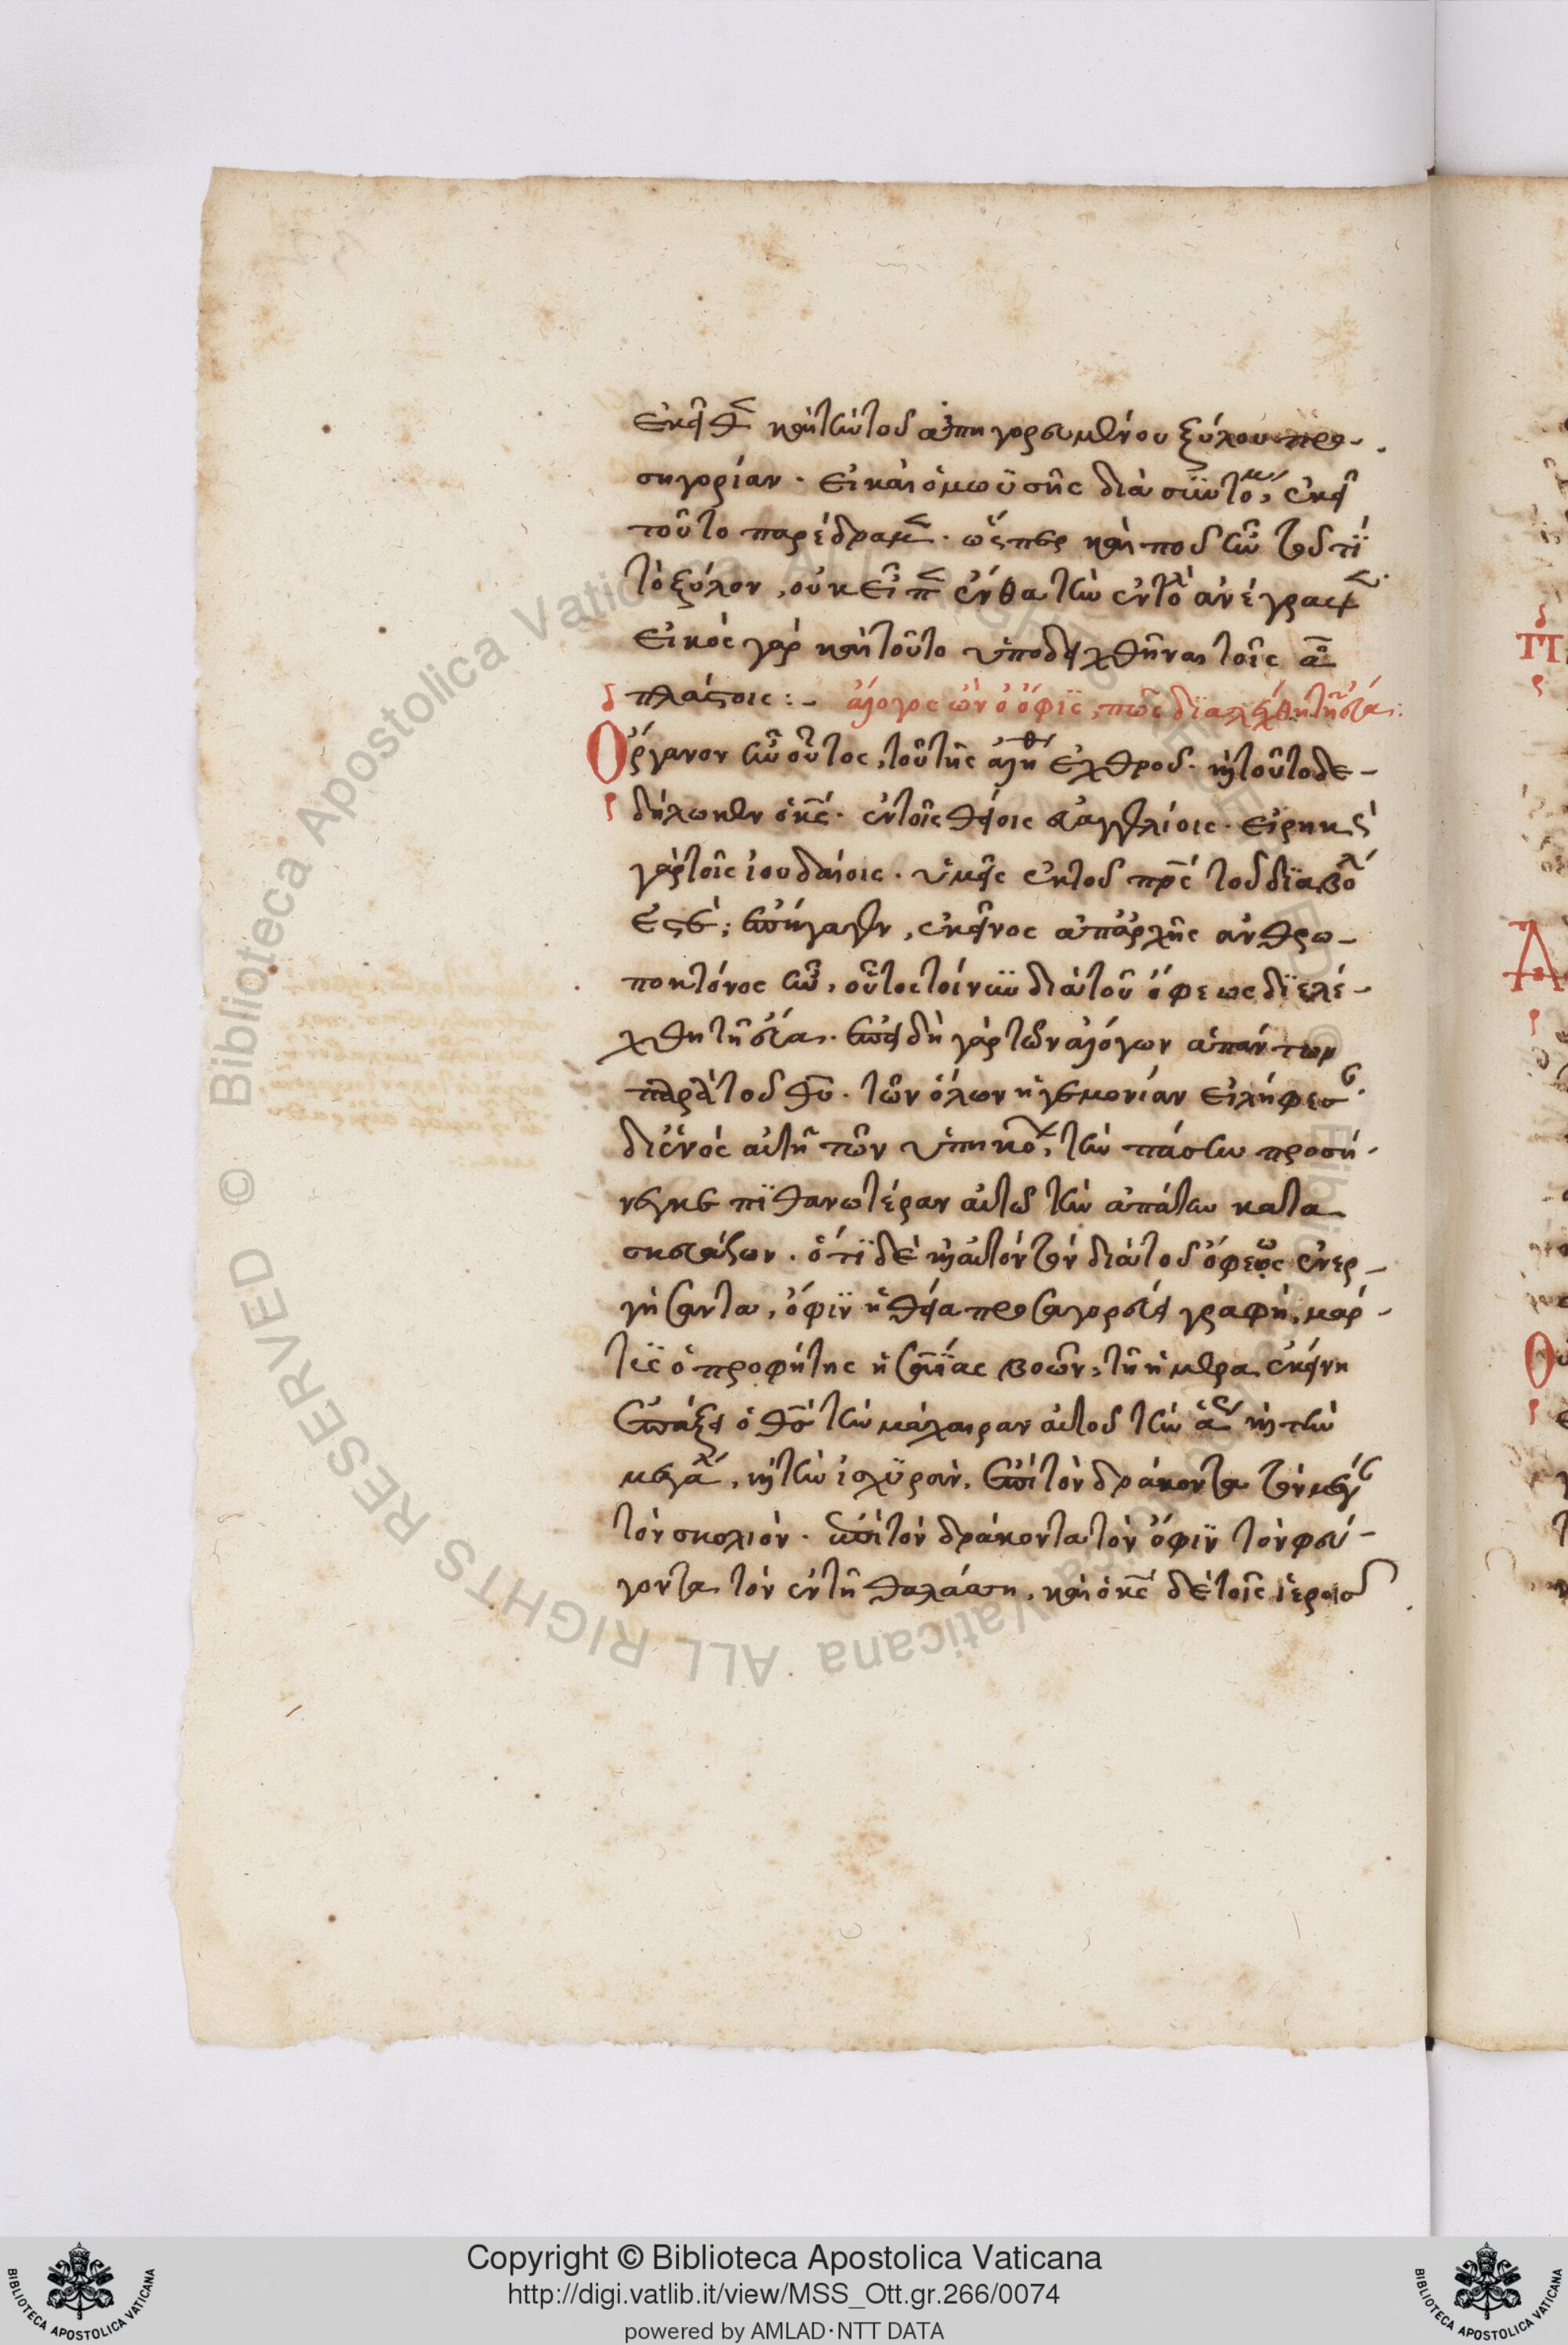 ἐκεῖθεν καὶ τὴν τοῦ ἀπηγορευμένου ξύλου προ-
σηγορίαν. εἰ καὶ ὁ μωϋσῆς διὰ συντομίαν ἐκεῖ
τοῦτο παρέδραμεν. ὥσπερ καὶ ποῦ ἦν τοῦτϊ
τὸ ξύλον, οὐκ εἶπεν ἔνθα τὴν ἐντολὴν ἀνέγραψεν.
εἰκὸς γὰρ καὶ τοῦτο ὑποδειχθῆναι τοῖς
πλάστοις :- ἄλογος ὢν ὁ ὄφϊς, πῶς δϊαλέχθη τῆ εὔα:
Ὄργανον ἦν οὗτος, τοῦ τῆς ἀληθείας ἐχθροῦ. καὶ τοῦτο δε-
δήλωκεν ὁ κς. ἐν τοῖς θείοις εὐαγγελίοις. εἰρηκὼς
γὰρ τοῖς ἰουδαίοις. ὑμεῖς ἐκ τοῦ πρς τοῦ δϊαβόλου
ἐστέ; ἐπήγαγεν, ἐκεῖνος ἀπ' ἀρχῆς ἀνθρω-
ποκτόνος ἦν, οὗτος τοίνυν διὰ τοῦ ὄφεως δϊελέ-
χθη τῆ εὔα. ἐπειδὴ γὰρ τῶν ἀλόγων ἁπάντων
παρὰ τοῦ θυ. τῶν ὅλων ἡγεμονίαν εἰλήφεσαν.
δι' ἑνὸς αὐτῆ τῶν ὑπηκόων, τὴν πάστην προσή-
νεγκε πϊθανωτέραν αὐτῶ τὴν ἀπάτην κατα
σκευάζων. ὅτϊ δὲ καὶ αὐτὸν τὸν διὰ τοῦ ὄφεως ἐνερ-
γήσαντα, ὄφϊν ἡ θεία προσαγορεύει γραφή, μάρ-
τϋς ὁ προφήτης ἡσαΐας βοῶν, τῆ ἡμέρα ἐκείνη
ἐπάξει ὁ θς τὴν μάχαιραν αὐτοῦ τὴν ἁγίαν καὶ τὴν
μεγάλην, καὶ τὴν ἰσχϋράν, ἐπὶ τὸν δράκοντα τὸν μέγαν
τὸν σκολιόν. ἐπὶ τὸν δράκοντα τὸν ὄφϊν τὸν φεύ-
γοντα τὸν ἐν τῆ θαλάσση, καὶ ὁ κς δὲ τοῖς ἱεροῖς
Copyright © Biblioteca Apostolica Vaticana
http://digi.vatlib.it/view/MSS_Ott.gr.266/0074
powered by AMLAD·NTT DATA